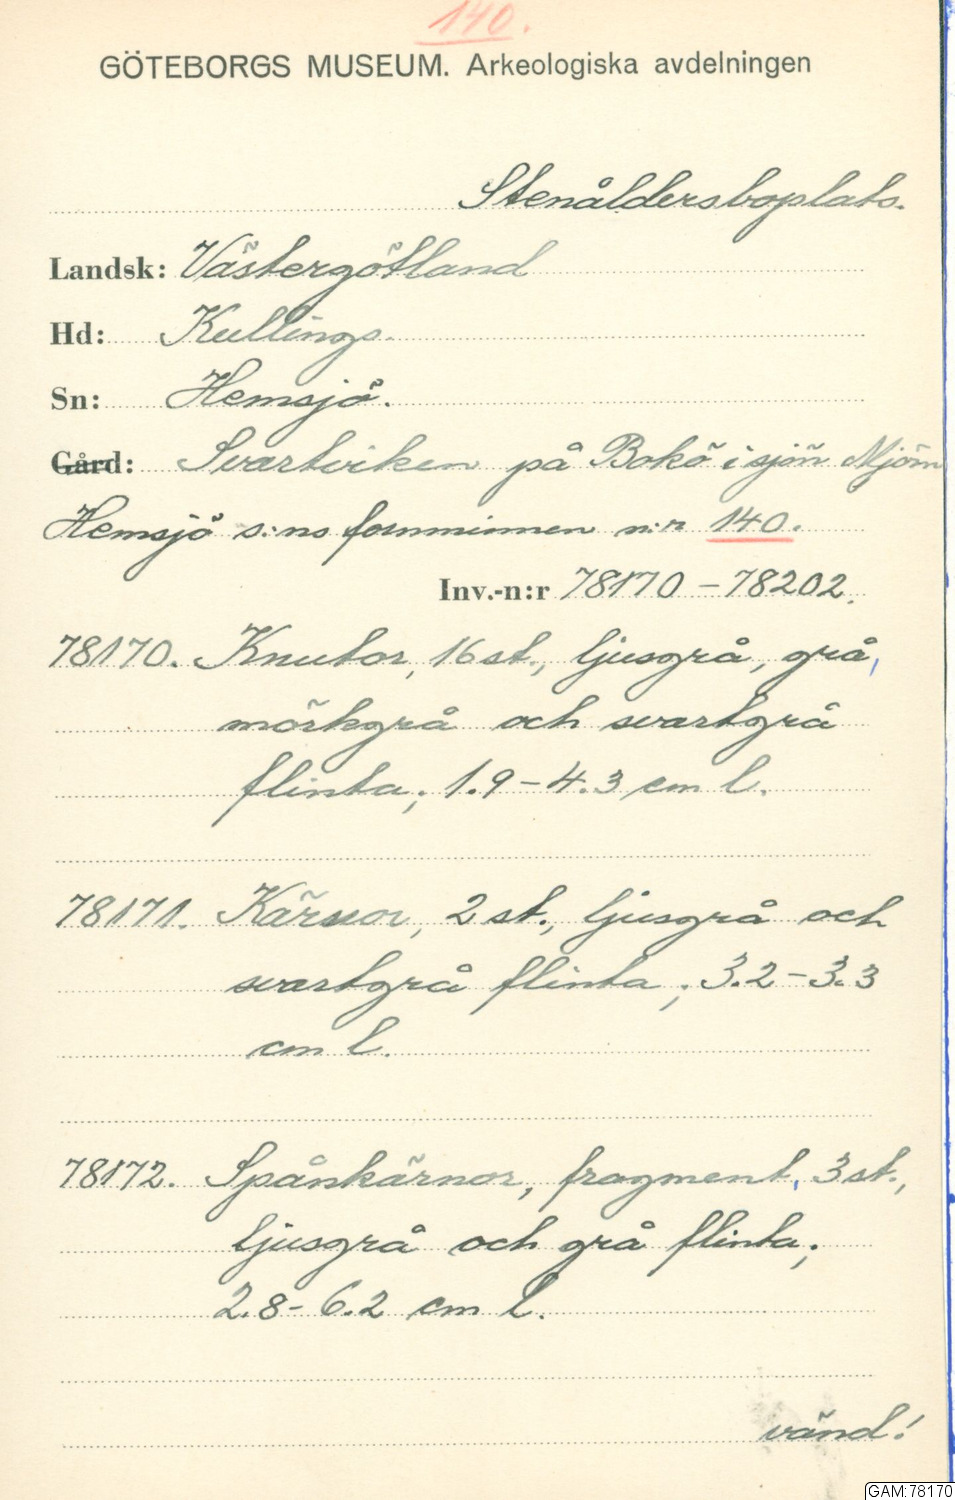 140.
GÖTEBORGS MUSEUM. Arkeologiska avdelningen
Stenåldersboplats.
Landsk: Västergötland
Hd: Kullings.
Sn: Hemsjö.
Gård: Svartviken på Bokö i sjön Mjörn
Hemsjö s:ns fornminnen n:r 140.
Inv.-n:r 78170-78202.
78170. Knutor, 16 st., ljusgrå, grå,
mörkgrå och svartgrå
flinta; 1.9-4.3 cm l.
78171. Kärnor, 2 st., ljusgrå och
svartgrå flinta; 3.2-3.3
cm l.
78172. Spånkärnor, fragment, 3 st.,
ljusgrå och grå flinta;
2.8-6.2 cm l.
vänd!
GAM:78170